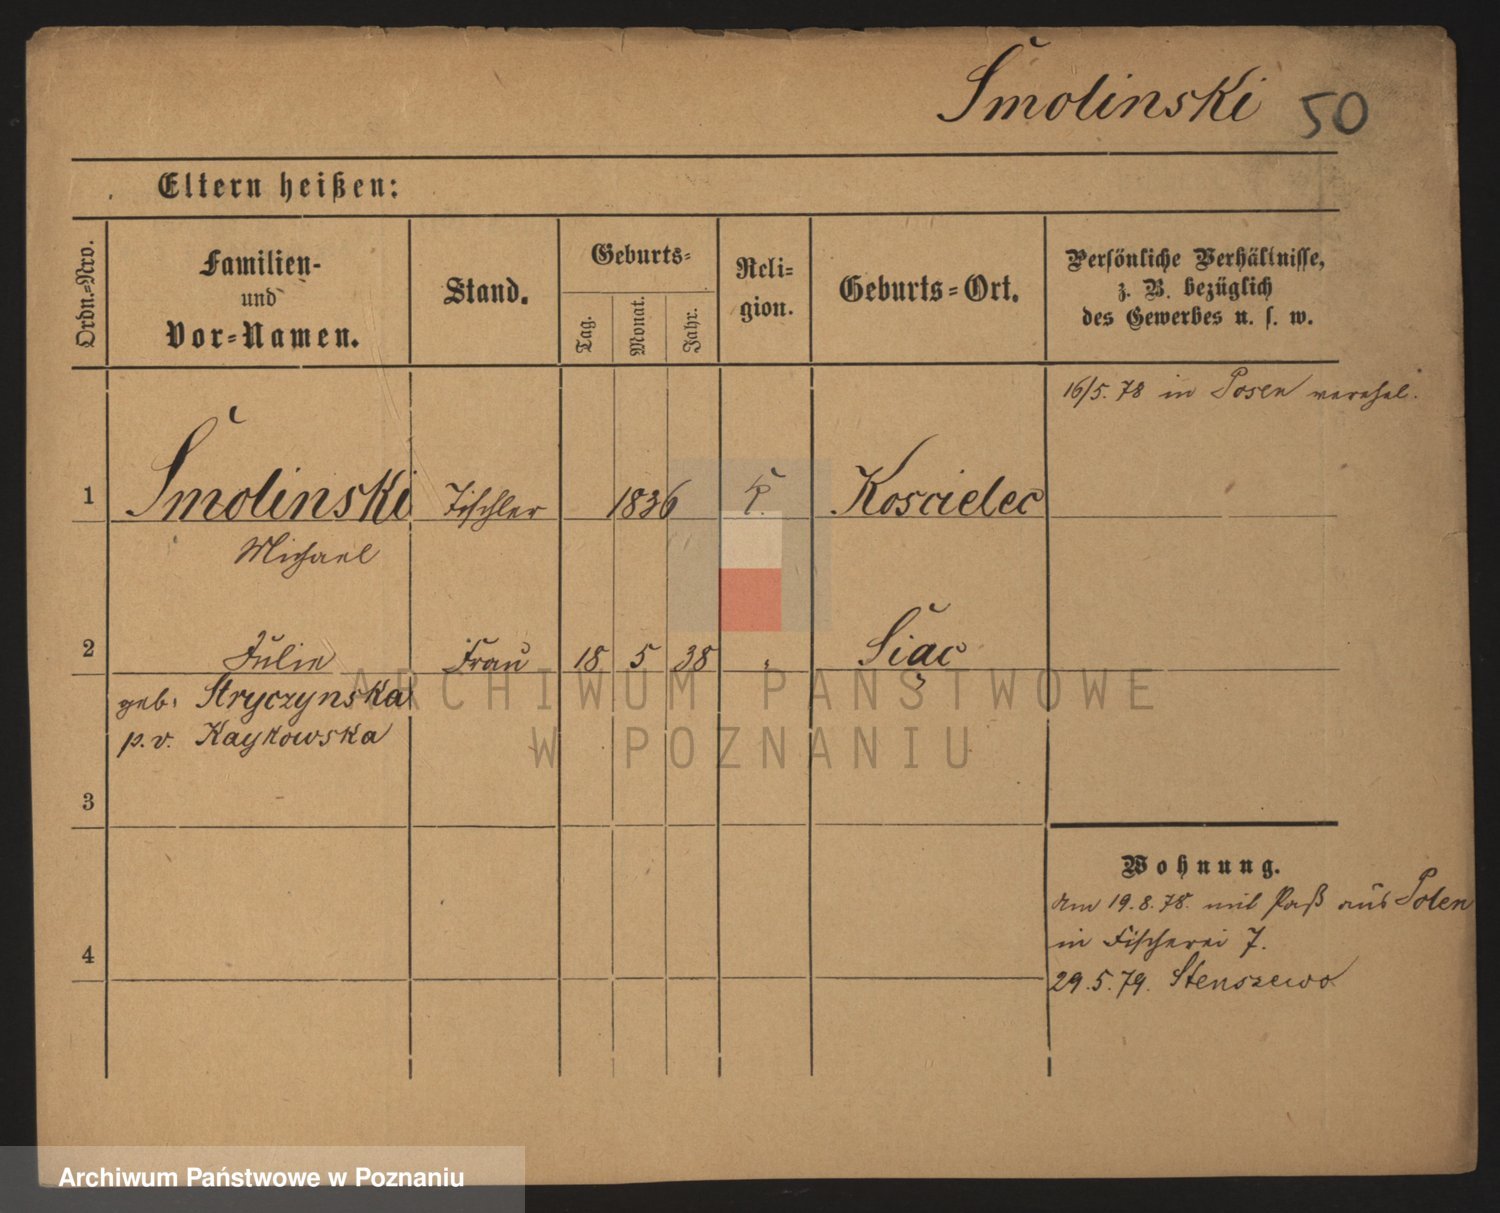 Smolinski 50
Eltern heißen:
Ordn.=Nro.
Familien-
und
Vor=Namen.
Stand.
Geburts=
Tag.
Monat.
Jahr.
Reli=
gion.
Geburts=Ort.
Persönliche Verhältnisse,
z. B. bezüglich
des Gewerbes u. s. w.
16/5. 78 in Posen verehel.
1 Smolinski Tischler 1836 k. Koscielec
Michael
2 Julie Frau 18 5 38 " Siąc
geb. Stryczynska
p. v. Kaykowska
ARCHIWUM PAŃSTWOWE
W POZNANIU
3
Wohnung.
am 19.8.78. mit Paß aus Polen
in Fischerei 7.
4
29.5.79. Stenszewo
Archiwum Państwowe w Poznaniu